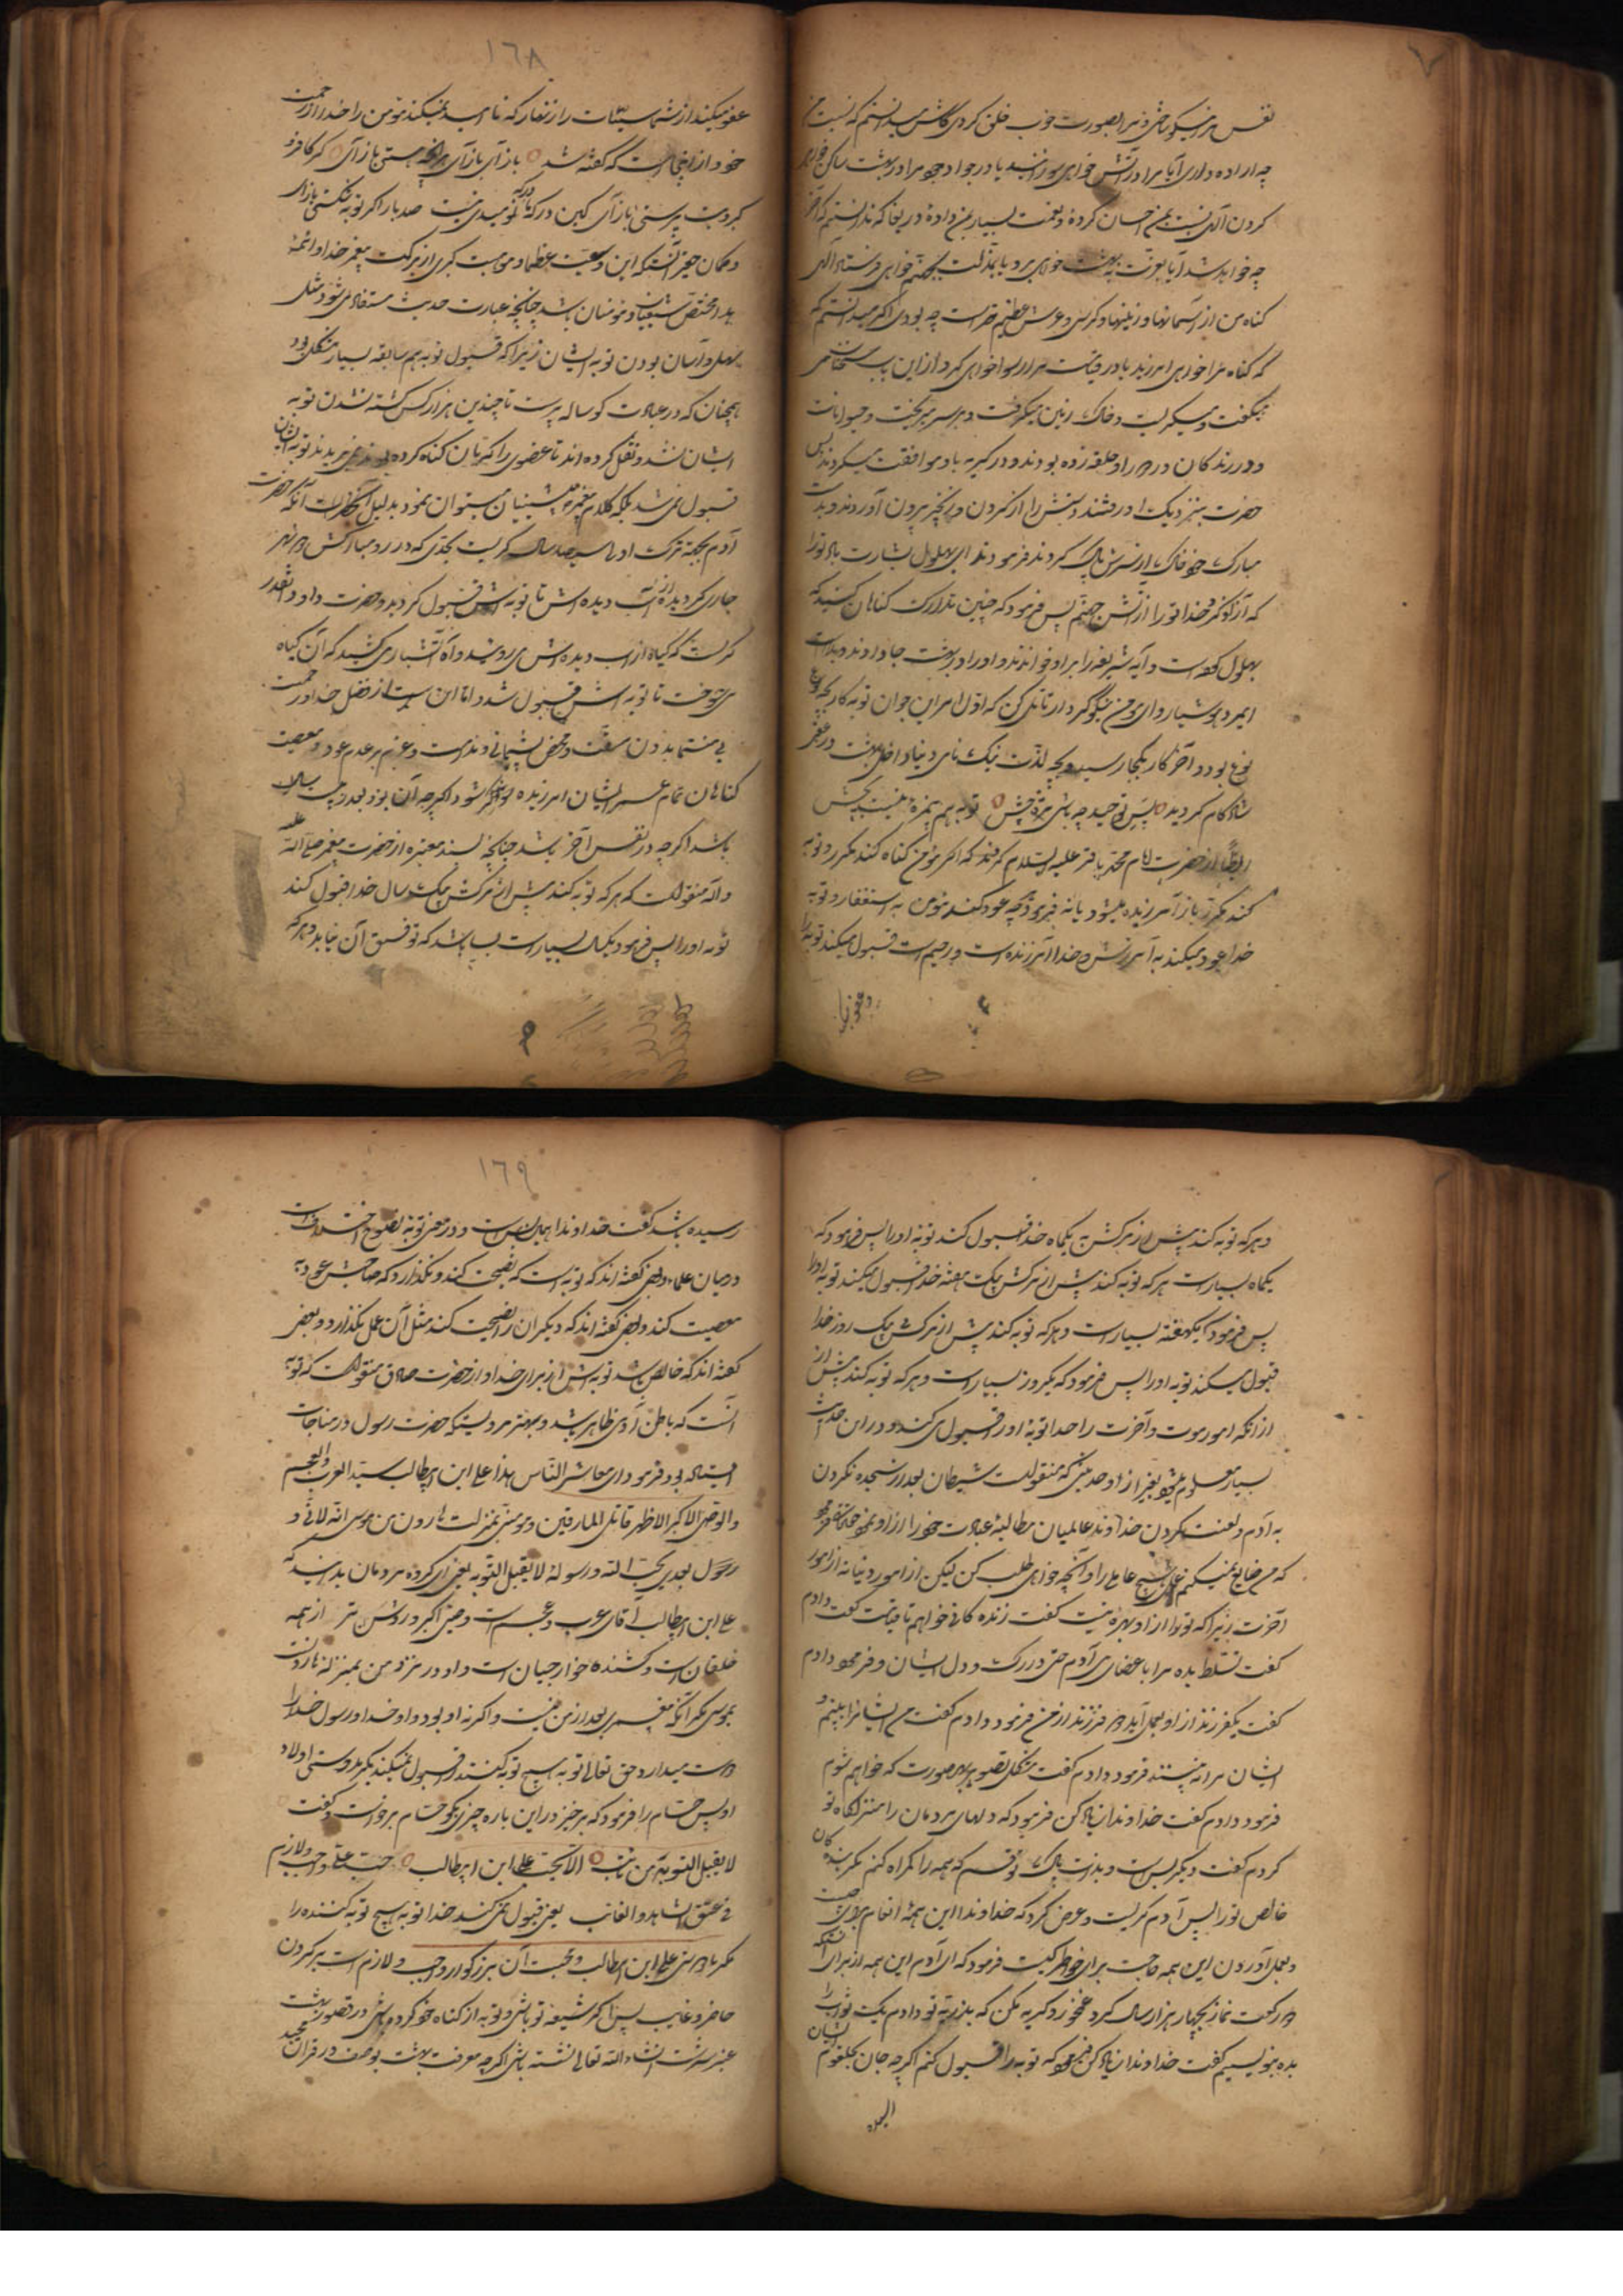 نفس مرا نیکو ساختی و مرا بصورت خوب خلق کردی کاش میدانستم که نسبت بمن
چه اراده داری آیا مرا در آتش خواهی سوزانید یا در جوار خود مرا در بهشت ساکن خواهی
کردن الهی نسبت بمن احسان کردهٔ و نعمت بسیار بمن دادهٔ دریغا که ندانستم که آخر
چه خواهد شد آیا بعزت به بهشت خواهی برد یا بمذلت بجهنم خواهی فرستاد الهی
کناه من از آسمانها و زمینها و کرسی و عرش عظیم تر است چه بودی اکر میدانستم که
که کناه مرا خواهی آمرزید یا در قیامت مرا رسوا خواهی کرد از این باب سخنان
میکفت و میکریست و خاک زمین میکرفت و بر سر میریخت و حیوانات
و درندکان دور او حلقه زده بودند و در کریه با او موافقت میکردند پس
حضرت بنزدیک او رفتند و دستش را از کردن و زنجیر بیرون آوردند و بدست
مبارک خود خاک از سرش پاک کردند فرمودند ای بهلول بشارت باد تورا
که آزاد کرد خدا تورا از آتش جهنم پس فرمود که چنین تدارک کناهان کنید که
بهلول کرده است و آیه شریفه را بر او خواندند و او را در بهشت جا دادند
ای مرد هوشیار و ای مؤمن نیکو کردار تأمل کن که اول امر این جوان توبه کار بچه نوع
نوع بود و آخر کار بکجا رسید و بچه لذت نیک نامی دنیا و داخل بهشت در عقبی
شاد کام کردید
ایضا از حضرت امام محمد باقر علیه السلام کرده که اکر مؤمن کناه کند مکرر و توبه
کند مکرر باز آمرزیده میشود یا نه فرمود هرکه عود کند مؤمن به استغفار و توبه
خدا عود میکند به آمرزش و خدا آمرزنده است و رحیم است قبول میکند توبه را
و عفو
١٦٨
عفو میکند از شما سیئات را زنهار که نا امید نمیکند مؤمن را خدا از رحمت
خود از اینجاست که کفته شد باز آی باز آی هر آنچه هستی باز آی کر کافر و
کبر و بت پرستی باز آی کین درکه ما درکه نومیدی نیست صد بار اکر توبه شکستی باز آی
و کمان حقیر آنستکه این وسعت عظما و موهبت کبری از برکت پیغمبر خدا و ائمهٔ
هدا مختص شیعیان و مؤمنان باشد چنانچه عبارت حدیث مستفاد میشود
سهل و آسان بودن توبه ایشان زیرا که قبول توبه امم سابقه بسیار مشکل بود
همچنان که در عبادت کوساله پرست تا چندین هزار کس کشته نشدند توبه
ایشان نشد و نقل کرده اند تا عضوی را که بآن کناه کرده بودند نمی بریدند توبه ایشان
قبول نمی شد بلکه کلام پیغمبر پیشینیان میتوان نمود بدلیل آنکه حضرت
آدم بجهت ترک اولی سیصد سال کریست بحدی که در رو مبارکش دو نهر
جاری کردیده از آب دیده اش تا توبه اش قبول کردید و حضرت داود آنقدر
کریست که کیاه از آب دیده اش می روئید و آه آتشبار می کشید که آن کیاه
می سوخت تا توبه اش قبول شد و اما این است از فضل خدا و رحمت
بی منتها بدون مشقت و محض پشیمانی و ندامت و عزم بر عدم عود و معصیت
کناهان تمام عمر ایشان آمرزیده شود اکر چه آن بود بعد سالها
باشد اکر چه در نفس آخر باشد چنانچه بسند معتبره از حضرت پیغمبر صلی الله علیه
و آله منقولست که هر که توبه کند پیش از مرکش بیک سال خدا قبول کند
توبه او را پس فرمود یکسال بسیار است بسا باشد که توفیق آن نیابد و هر که
و هر که توبه کند پیش از مرکش به یکماه خدا قبول کند توبه او را پس فرمود که
یکماه بسیار است هر که توبه کند پیش از مرکش بیک هفته خدا قبول میکند توبه او را
پس فرمود که یکهفته بسیار است و هر که توبه کند پیش از مرکش بیک روز خدا
قبول میکند توبه او را پس فرمود که یکروز بسیار است و هر که توبه کند پیش از
از آنکه امور موت و آخرت را خدا توبهٔ او را قبول می کند و در این حدیث
بسیار معلوم میشود بغیر از او حدیثی که منقولست شیطان بعد از سجده نکردن
به آدم و لعنت کردن خداوند عالمیان مطالبهٔ عبادت خود را از او نمود فرمود
که من ضایع نمیکنم عمل هیچ عاملی را و آنچه خواهی طلب کن لیکن از امور دنیا نه از امور
آخرت زیرا که تورا از او بهره نیست کفت زنده کانی خواهم تا قیامت کفت دادم
کفت تسلط بده مرا با عضای بنی آدم حتی در رک و دل ایشان فرمود دادم
کفت یکفرزند از او بعمل آید دو فرزند از من فرمود دادم کفت من ایشانرا ببینم و
ایشان مرا نه بینند فرمود دادم کفت بشکل تصور هر صورت که خواهم شوم
فرمود دادم کفت خداوندا زیاد کن فرمود که دلهای مردمان را منزلکاه تو
کردم کفت دیکر بس است و بذات پاک تو قسم که همه را کمراه کنم مکر بنده کان
خالص تورا پس آدم کریست و عرض کرد که خداوندا این همه انعام برای چیست
و بعمل آوردن این همه حاجت برای خاطر کیست فرمود که ای آدم این همه از برای آنستکه
دو رکعت نماز بچهار هزار سال کرد غم مخور و کریه مکن که بذریه تو دادم یک ثواب را
بده بنویسیم کفت خداوندا زیاد کن فرمود که توبه را قبول کنم اکر چه جان بحلقوم ایشان
١٦٩
رسیده باشد کفت خداوندا همان بس است و در معنی توبه نصوح اختلافست
در میان علماء بعضی کفته اند که توبه است که نصیحت کند و نکذارد که صاحبش عود به
معصیت کند و بعضی کفته اند که دیکران را نصیحت کند مثل آن عمل نکذارد و بعضی
کفته اند که خالص باشد توبه اش از برای خدا و از حضرت صادق منقولست که توبه
آنست که باطن آدمی ظاهر باشد و بهتر مرویستکه حضرت رسول در مناجات
ایستاده بود فرمود ای معاشر الناس هذا علی ابن ابیطالب سید العرب و العجم
والوصی الاکبر الاظهر قاتل المارقین و هو منی بمنزلت هارون من موسی الا انه لا نبی و
رسول بعدی یحب الله و رسوله لا یقبل التوبه یعنی ای کروه مردمان بدانید که
علی ابن ابیطالب آقای عرب و عجم است وصی اکبر و روشن تر از همه
خلقان است و کشنده خوارجیان است و او در نزد من بمنزله هارونست
بموسی مکر آنکه پیغمبری بعد از من نیست و اکر نه او بود و او خدا و رسول خدا را
دوست میدارد حق تعالی توبه هیچ توبه کننده قبول نمیکند مکر بدوستی اولاد
او پس حسام را فرمود که بر خیز در این باره چیزی بکو حسام بر خواست و کفت
لا یقبل التوبه من تائب الا بحب علی ابن ابیطالب حب علی واجب و لازم
فی عنق الشاهد و الغائب یعنی قبول نمی کند خدا توبه هیچ توبه کننده را
مکر با دوستی علی ابن ابیطالب و محبت آن بزرکوار واجب و لازم است بر کردن
حاضر و غایب پس اکر شیعه تو باشی و توبه از کناه خود کرده باشی در قصور بهشت
عنبر سرشت انشاء الله تعالی نشسته باشی اکر چه معرفت بهشت بوصف در قرآن مجید